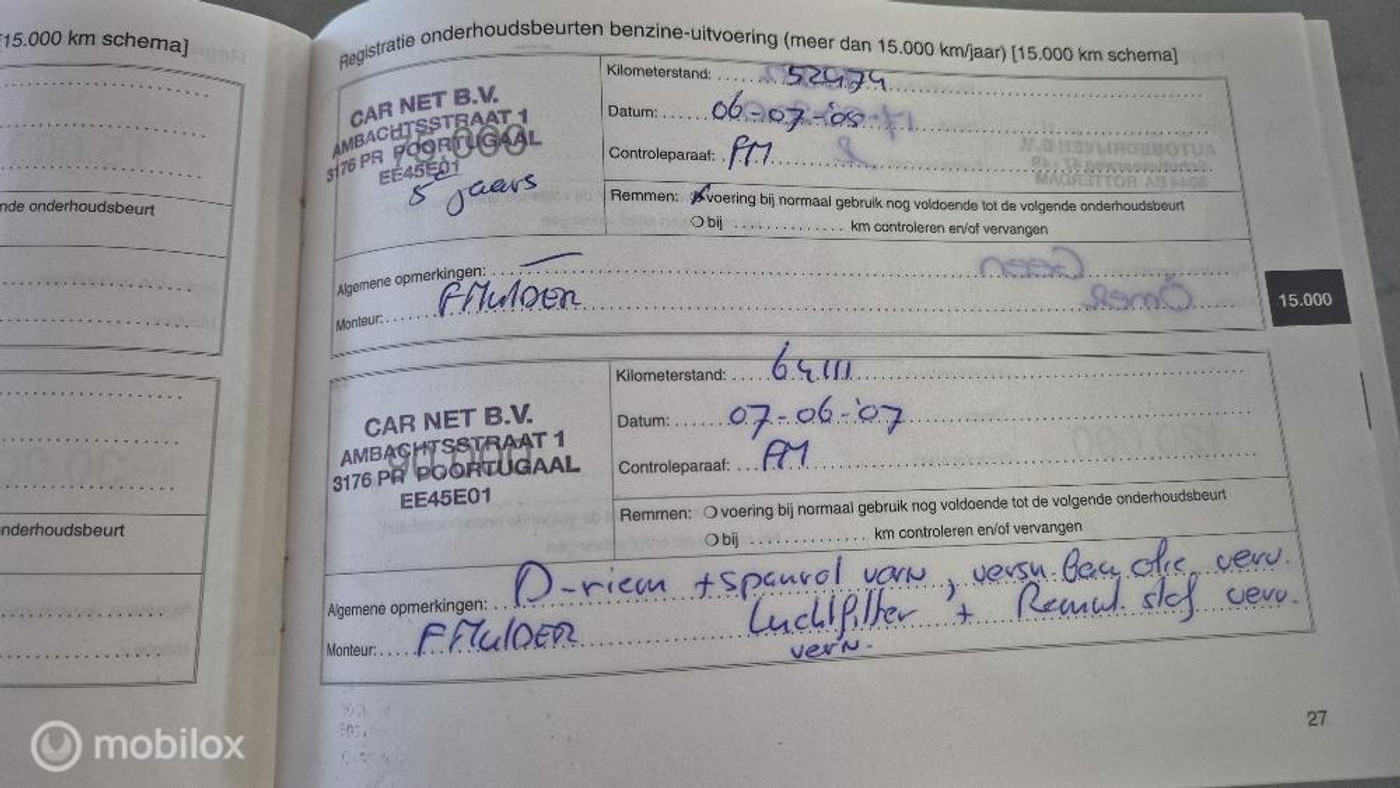 [15.000 km schema]
nde onderhoudsbeurt
nderhoudsbeurt
Registratie onderhoudsbeurten benzine-uitvoering (meer dan 15.000 km/jaar) [15.000 km schema]
CAR NET B.V.
AMBACHTSSTRAAT 1
3176 PR POORTUGAAL
EE45E01
75.000
5e jaars
Kilometerstand: 52474
Datum: 06-07-'05
Controleparaaf: FM
Remmen: voering bij normaal gebruik nog voldoende tot de volgende onderhoudsbeurt
bij km controleren en/of vervangen
Algemene opmerkingen: —
Monteur: F MULDER
15.000
CAR NET B.V.
AMBACHTSSTRAAT 1
3176 PR POORTUGAAL
EE45E01
90.000
Kilometerstand: 64111
Datum: 07-06-'07
Controleparaaf: FM
Remmen: voering bij normaal gebruik nog voldoende tot de volgende onderhoudsbeurt
bij km controleren en/of vervangen
Algemene opmerkingen: D-riem + spanrol verv, versn. bak olie verv.
Luchtfilter + Remvl. stof verv.
Monteur: F MULDER verv.
27
mobilox